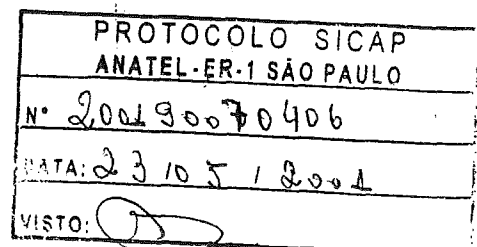 PROTOCOLO SICAP
ANATEL-ER-1 SÃO PAULO
N° 200190070406
DATA: 23 / 05 / 2001
VISTO: